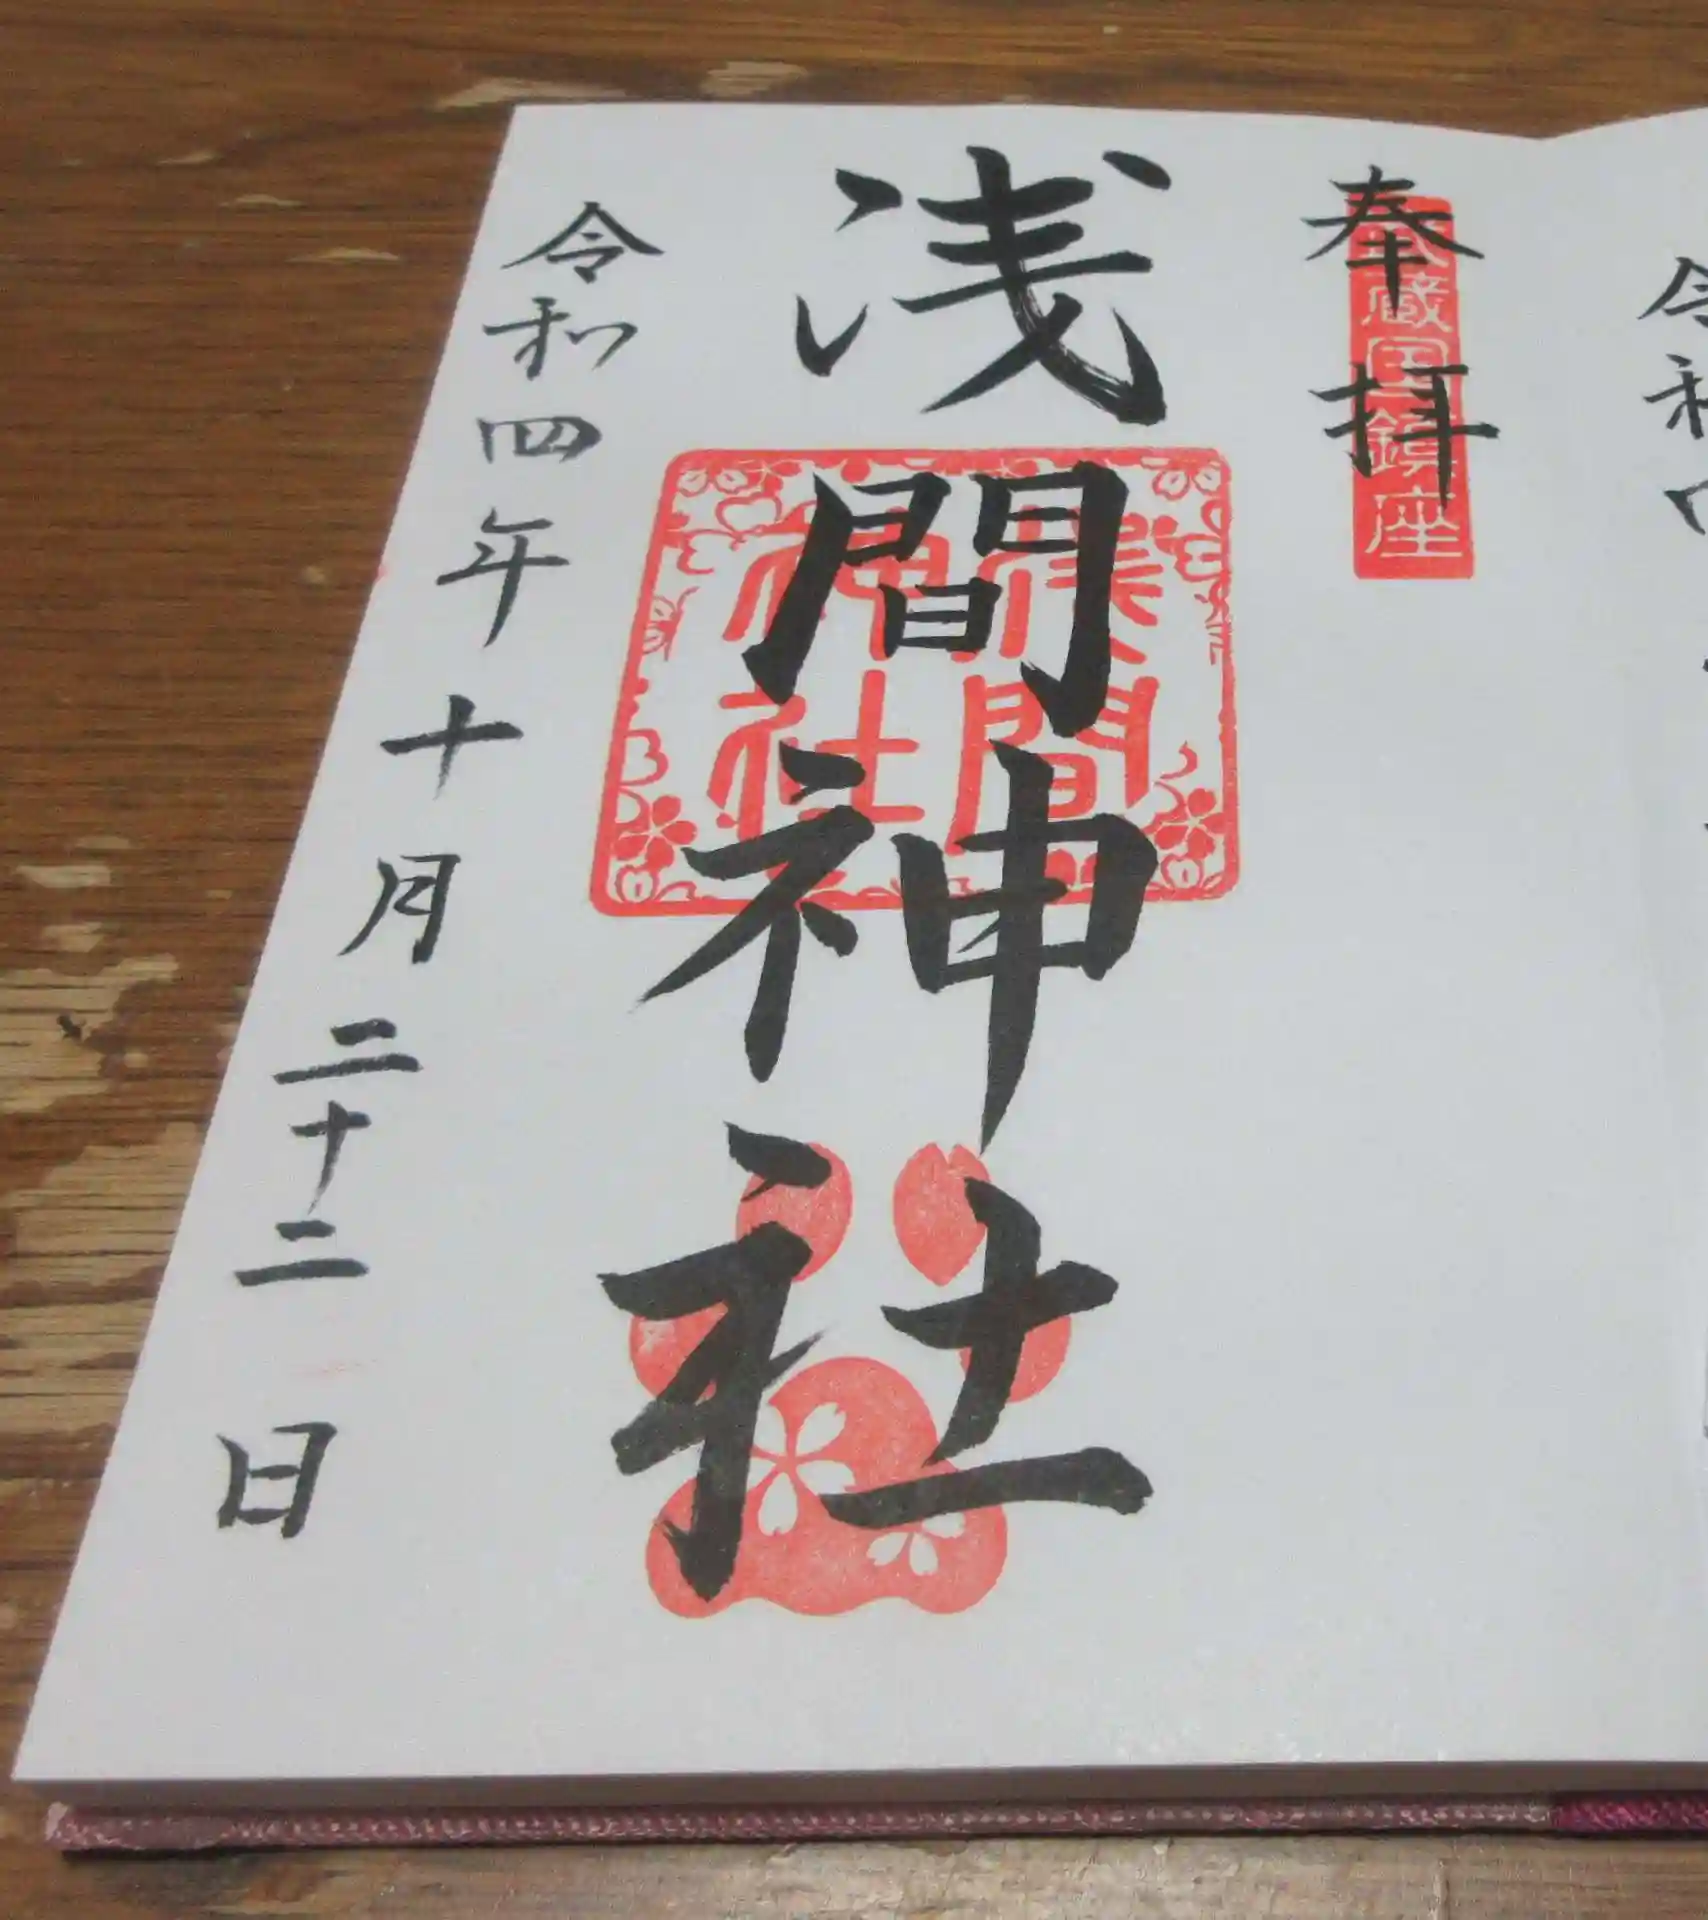 令和四
奉拝
武蔵国鎮座
浅間神社
浅間神社
令和四年十月二十二日